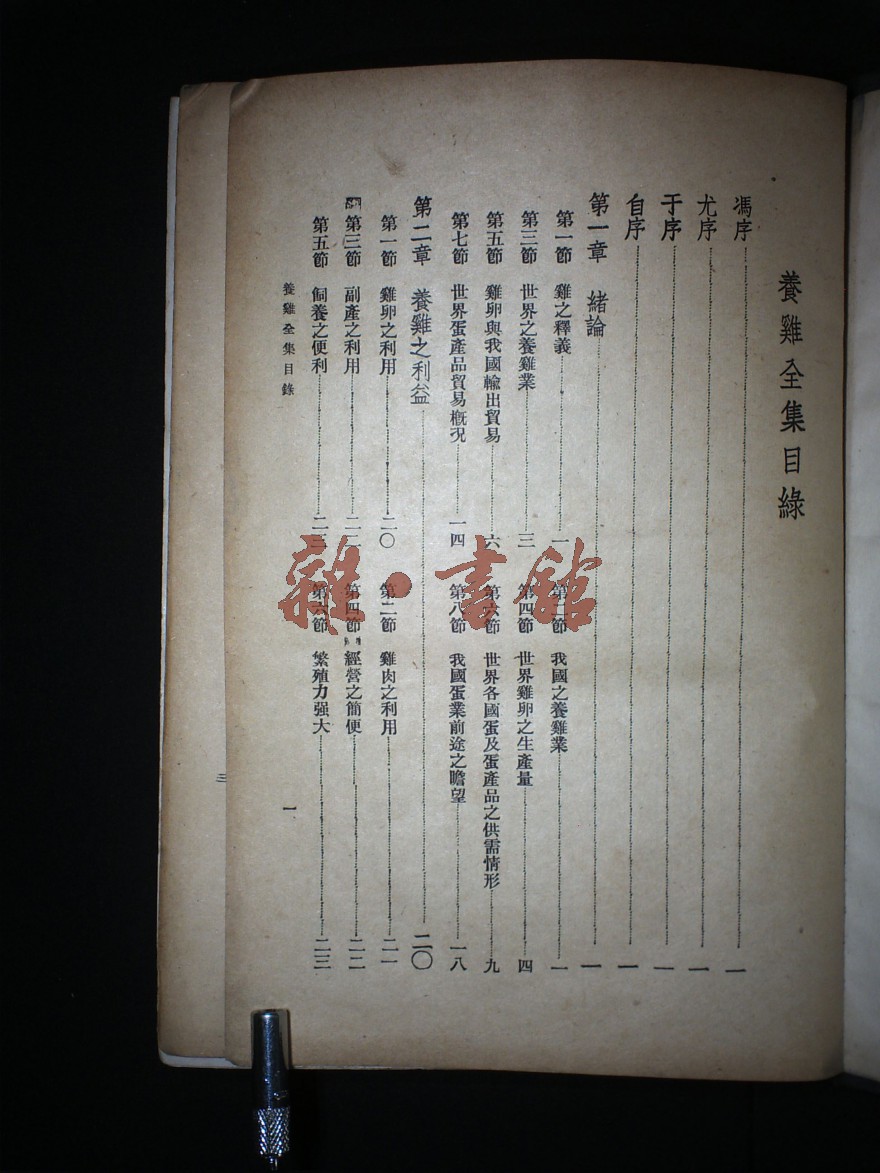 養雞全集目綠
馮序 一
尤序 一
于序 一
自序 一
第一章 緒論 一
第一節 雞之釋義 一 第二節 我國之養雞業 一
第三節 世界之養雞業 三 第四節 世界雞卵之生產量 四
第五節 雞卵與我國輸出貿易 六 第六節 世界各國蛋及蛋產品之供需情形 九
第七節 世界蛋產品貿易概況 一四 第八節 我國蛋業前途之瞻望 一八
第二章 養雞之利益 二〇
第一節 雞卵之利用 二〇 第二節 雞肉之利用 二一
第三節 副產之利用 二二 第四節 經營之簡便 二二
第五節 飼養之便利 二三 第六節 繁殖力强大 二三
養雞全集目錄 一
三
雜·書館